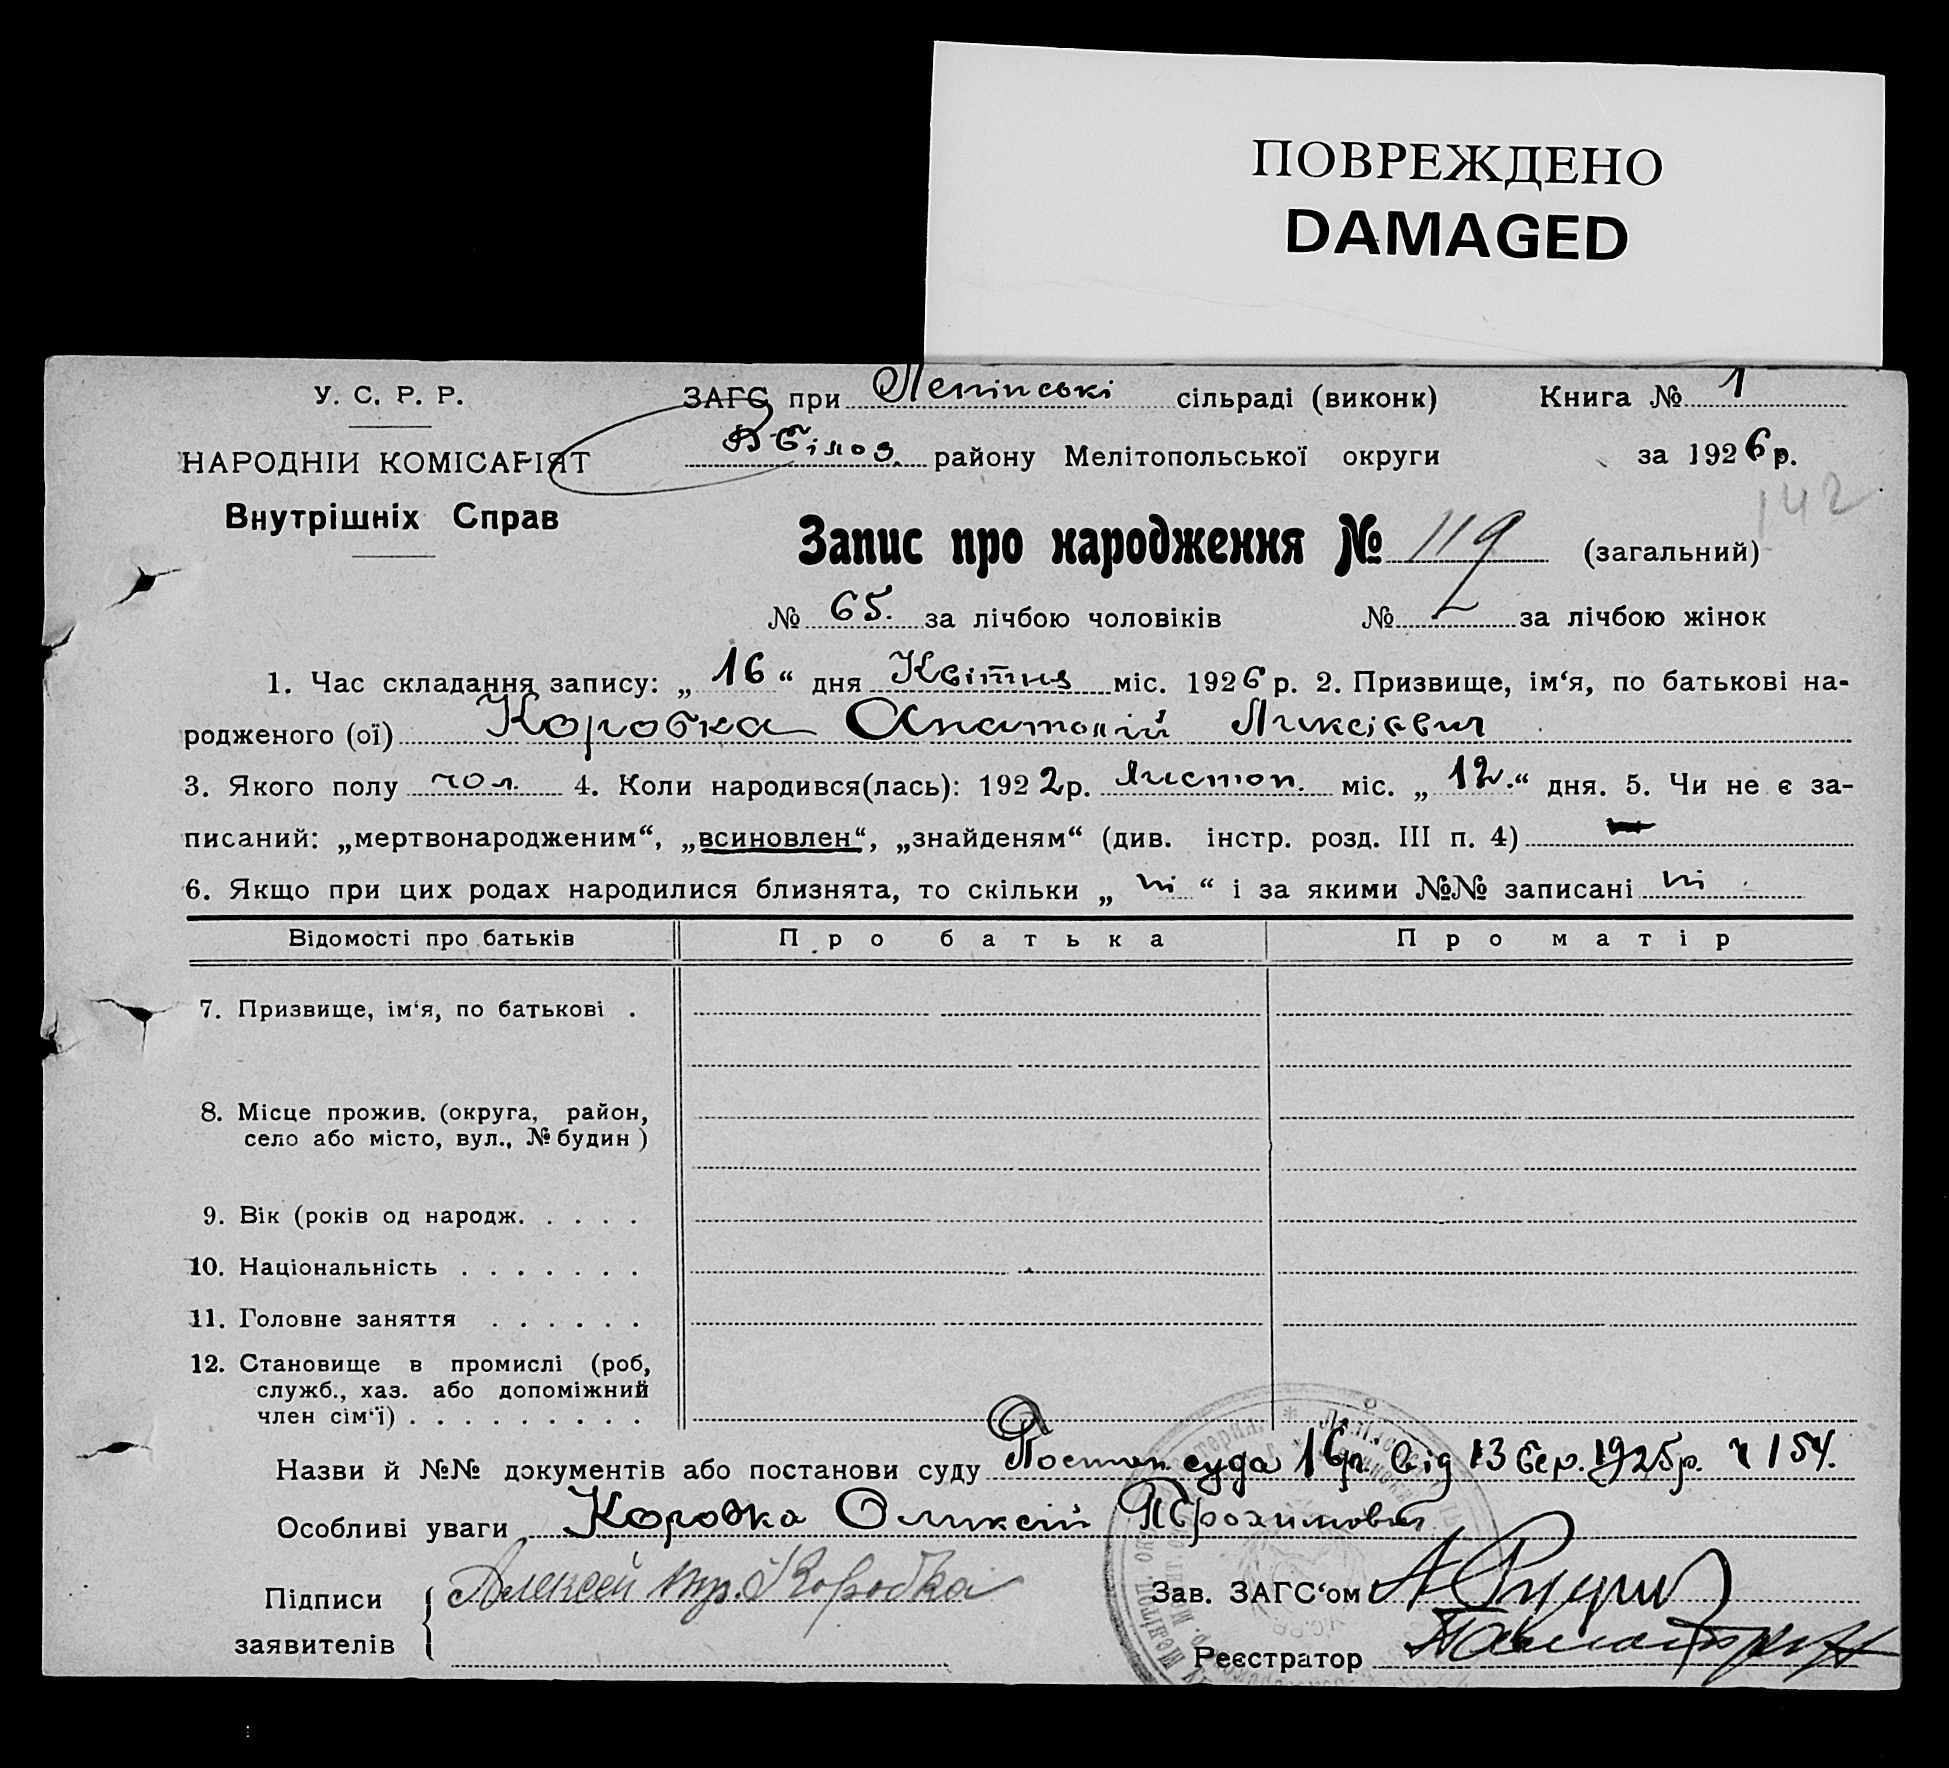 ПОВРЕЖДЕНО
DAMAGED
У. С. Р. Р.
НАРОДНІЙ КОМІСАРІЯТ
Внутрішніх Справ
ЗАГС при Ленінські сільраді (виконк) Книга № 1
В Білоз. району Мелітопольської округи за 1926 р.
142
Запис про народження № 119 (загальний)
№ 65. за лічбою чоловіків № за лічбою жінок
1. Час складання запису: „ 16 “ дня Квітня міс. 1926 р. 2. Призвище, ім‘я, по батькові на-
родженого (ої) Коробка Анатолій Ликсієвич
3. Якого полу чол. 4. Коли народився(лась): 1922 р. Листоп. міс. „ 12. “ дня. 5. Чи не є за-
писаний: „мертвонародженим“, „всиновлен“, „знайденям“ (див. інстр. розд. III п. 4)
6. Якщо при цих родах народилися близнята, то скільки „ ні “ і за якими №№ записані ні
Відомості про батьків Про батька Про матір
7. Призвище, ім‘я, по батькові .
8. Місце прожив. (округа, район,
село або місто, вул., № будин )
9. Вік (років од народж. . . . .
10. Національність . . . . . . .
11. Головне заняття . . . . . .
12. Становище в промислі (роб,
служб., хаз. або допоміжний
член сім‘ї) . . . . . . . . .
Назви й №№ документів або постанови суду Постан. суда від 13 бер. 1925р. ч 154.
Особливі уваги Коробка Оликсій Трохимович
Підписи Алексей тр. Коробка
заявителів
Зав. ЗАГС‘ом
Реєстратор